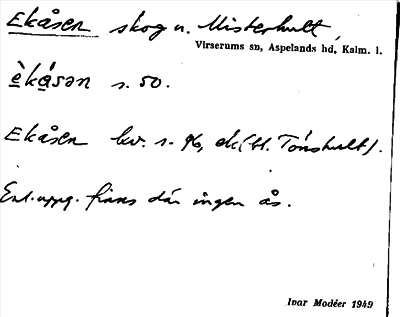 Ekåsen skog u. Misterhult,
Virserums sn, Aspelands hd, Kalm. l.
èkåsən s. 50.
Ekåsen kv. s. 96, ek (bl. Tönshult).
Enl. uppg. finns där ingen ås.
Ivar Modéer 1949